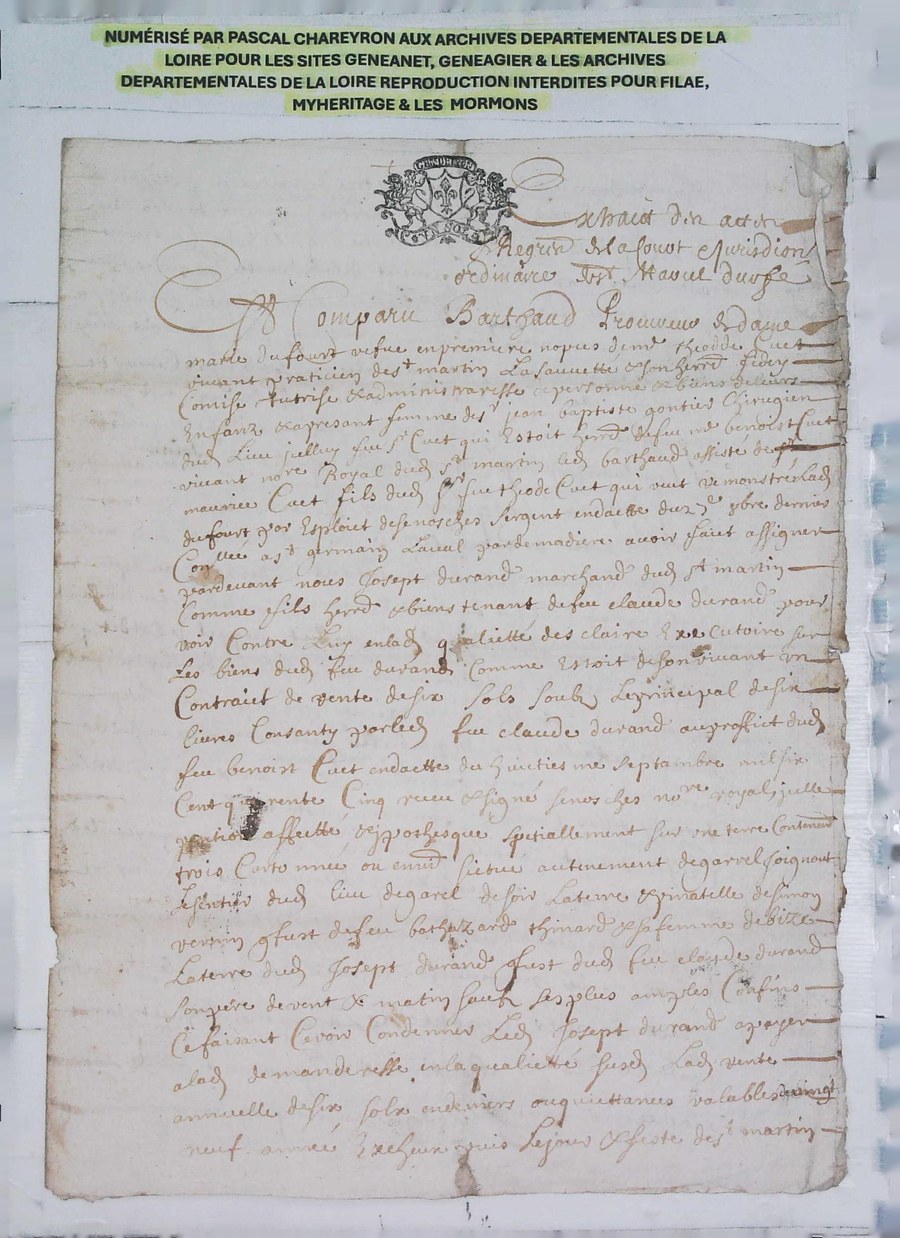 NUMÉRISÉ PAR PASCAL CHAREYRON AUX ARCHIVES DEPARTEMENTALES DE LA
LOIRE POUR LES SITES GENEANET, GENEAGIER & LES ARCHIVES
DEPARTEMENTALES DE LA LOIRE REPRODUCTION INTERDITES POUR FILAE,
MYHERITAGE & LES MORMONS
Extraict des actes
de la Court & Jurisdion
ordinaire St Maoul durfe
Est Comparu Barthaud Procureur de dame
marie dufourt vefue en premiere nopces de me theodde Cuet
vivant praticien de st martin La sauuetté & son herre fidey
Comise tutrise & administraresse personne & biens de leurs
Enfanz & apresant femme de sr jean baptiste gontier Chirugien
dud Lieu jelluy feu sr Cuet qui Estoit herre de feu me benoist Cuet
vivant nore Royal dud st martin led barthaud assisté de
maurice Cuet fils dud feu theode Cuet qui veut remonstré Lad
dufourt par Exploict de senosches sergent en datte du dernier
Conllé a st germain Laual par de madiere auoir faict assigner
pardeuant nous Josept durand marchand dud st martin
Comme fils herre & biens tenant de feu claude durand pour
voir Contre Luy enlad qualietté des claire Executoire sur
Les biens dud feu durand Comme Estoit de son viuant un
Contraict de vente de six sols soubz Le principal de six
liures Consanty par led feu claude durand au proffict dud
feu benoist Cuet en datte du huictiesme septambre mil six
Cent quarente Cinq receu & signé senosches nore royal jcelle
affetté & ypothesque spetiallement sur une terre Contenant
trois Cartonnée ou enuir sietue au tenement de garrel joignant
Le sentier dud lieu de garel de soir La terre & pinatelle de simon
vernin q fust de feu thinard & sa femme de bize
La terre dud Josept durand q fust dud feu claude durand
son pere de vent & matin sauf ses plus amples Confins
Ce faisant Ce voir Condenner Led Josept durand a payer
a lad demanderesse en la qualietté susd Lad vente
annuelle de six solz en deniers ou quiettances valables de vingt
neuf année Escheue puis Le jour & feste de st martin